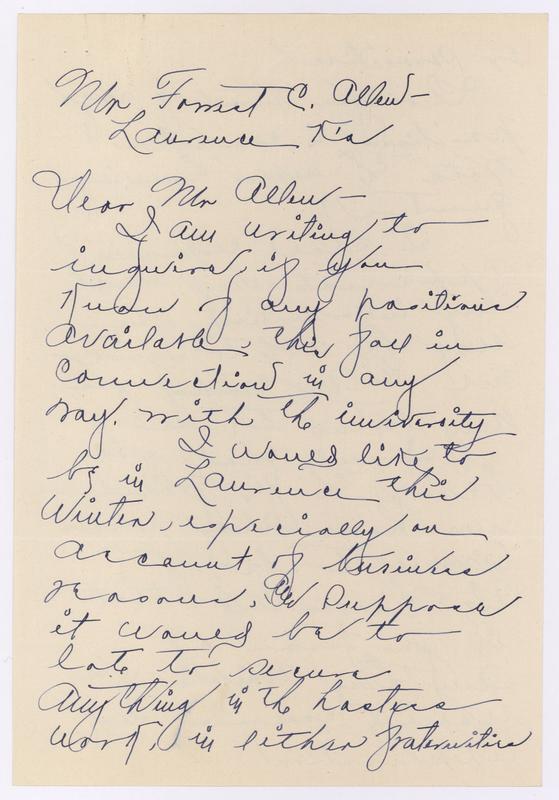 Mr Forrest C. Allen -
Lawrence Ks
Dear Mr Allen -
I am writing to
inquire, if you
know of any positions
available, this fall in
connection in any
way, with the university
I would like to
be in Lawrence this
Winter, especially on
account of business
reasons, and suppose
it would be to
late to secure
anything in the hostess
work, in either fraternities